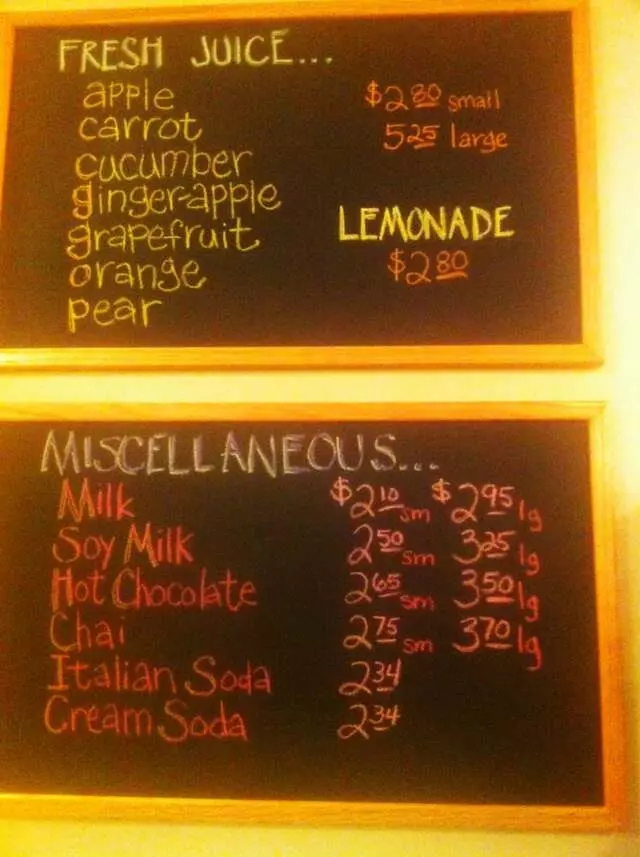 FRESH JUICE...
apple
carrot
cucumber
ginger-apple
grapefruit
orange
pear
$2 80 small
5 25 large
LEMONADE
$2 80
MISCELLANEOUS...
Milk $2 10 sm $2 95 lg
Soy Milk 2 50 sm 3 25 lg
Hot Chocolate 2 65 sm 3 50 lg
Chai 2 75 sm 3 70 lg
Italian Soda 2 34
Cream Soda 2 34